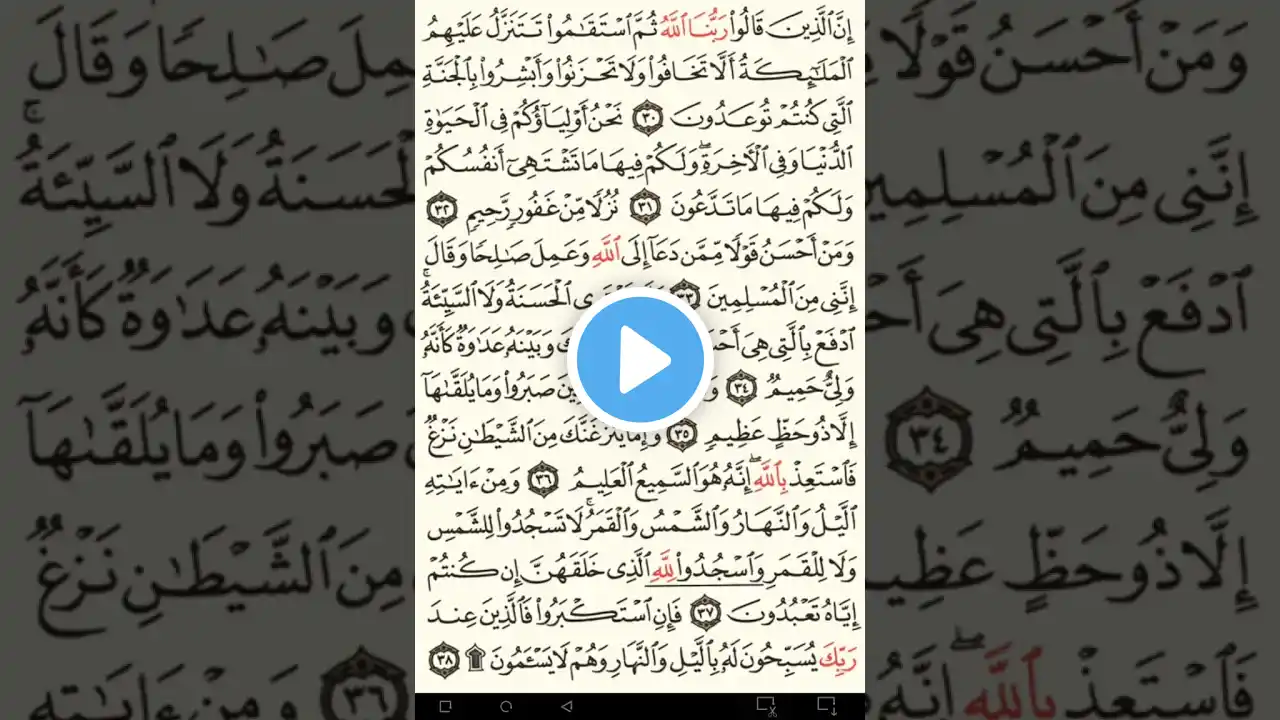 إِنَّ ٱلَّذِينَ قَالُوا۟ رَبُّنَا ٱللَّهُ ثُمَّ ٱسْتَقَـٰمُوا۟ تَتَنَزَّلُ عَلَيْهِمُ
ٱلْمَلَـٰٓئِكَةُ أَلَّا تَخَافُوا۟ وَلَا تَحْزَنُوا۟ وَأَبْشِرُوا۟ بِٱلْجَنَّةِ
ٱلَّتِى كُنتُمْ تُوعَدُونَ ٣٠ نَحْنُ أَوْلِيَآؤُكُمْ فِى ٱلْحَيَوٰةِ
ٱلدُّنْيَا وَفِى ٱلْـَٔاخِرَةِ ۖ وَلَكُمْ فِيهَا مَا تَشْتَهِىٓ أَنفُسُكُمْ
وَلَكُمْ فِيهَا مَا تَدَّعُونَ ٣١ نُزُلًا مِّنْ غَفُورٍ رَّحِيمٍ ٣٢
وَمَنْ أَحْسَنُ قَوْلًا مِّمَّن دَعَآ إِلَى ٱللَّهِ وَعَمِلَ صَـٰلِحًا وَقَالَ
إِنَّنِى مِنَ ٱلْمُسْلِمِينَ ٣٣ ٱلْحَسَنَةُ وَلَا ٱلسَّيِّئَةُ ۚ
ٱدْفَعْ بِٱلَّتِى هِىَ وَبَيْنَهُۥ عَدَٰوَةٌ كَأَنَّهُۥ
وَلِىٌّ حَمِيمٌ ٣٤ صَبَرُوا۟ وَمَا يُلَقَّىٰهَآ
إِلَّا ذُو حَظٍّ عَظِيمٍ ٣٥ وَإِمَّا يَنزَغَنَّكَ مِنَ ٱلشَّيْطَـٰنِ نَزْغٌ
فَٱسْتَعِذْ بِٱللَّهِ ۖ إِنَّهُۥ هُوَ ٱلسَّمِيعُ ٱلْعَلِيمُ ٣٦ وَمِنْ ءَايَـٰتِهِ
ٱلَّيْلُ وَٱلنَّهَارُ وَٱلشَّمْسُ وَٱلْقَمَرُ ۚ لَا تَسْجُدُوا۟ لِلشَّمْسِ
وَلَا لِلْقَمَرِ وَٱسْجُدُوا۟ لِلَّهِ ٱلَّذِى خَلَقَهُنَّ إِن كُنتُمْ
إِيَّاهُ تَعْبُدُونَ ٣٧ فَإِنِ ٱسْتَكْبَرُوا۟ فَٱلَّذِينَ عِندَ
رَبِّكَ يُسَبِّحُونَ لَهُۥ بِٱلَّيْلِ وَٱلنَّهَارِ وَهُمْ لَا يَسْـَٔمُونَ ۩ ٣٨